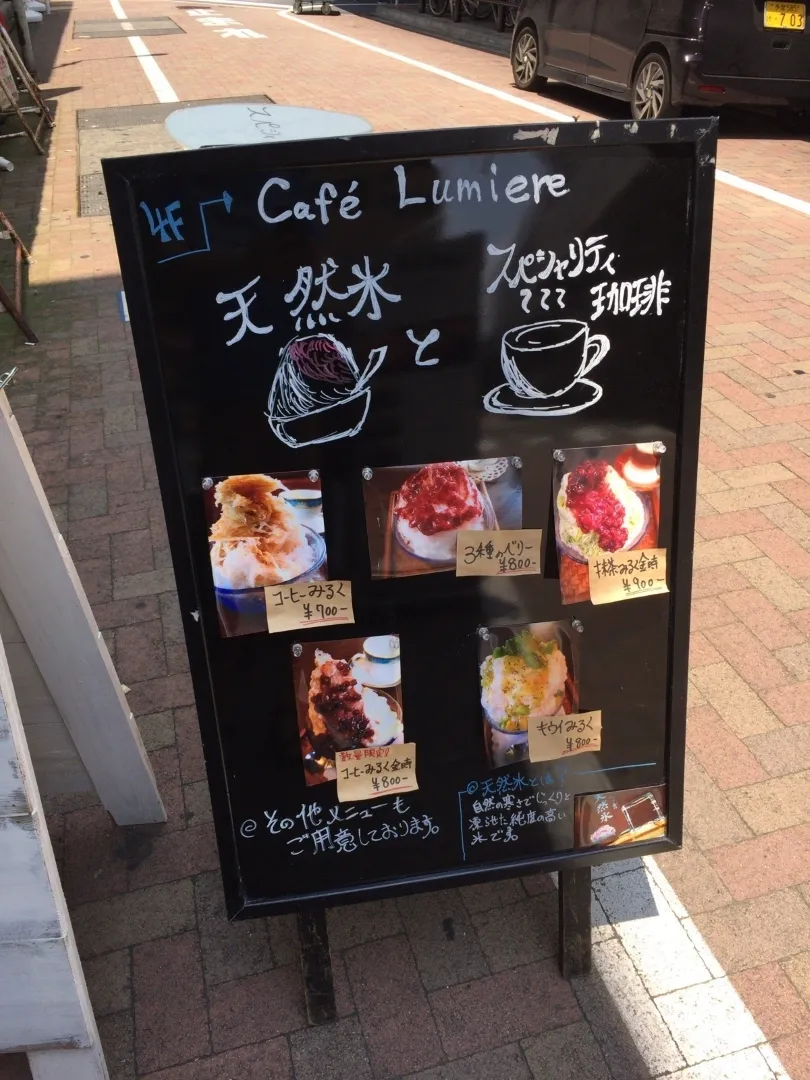 スペシャ
703
4F
Café Lumiere
天然氷
と
スペシャリティ
珈琲
コーヒーみるく
¥700-
3種のベリー
¥800-
抹茶みるく金時
¥900-
数量限定!
コーヒーみるく金時
¥800-
キウイみるく
¥800-
@その他メニューも
ご用意しております。
@天然氷とは?
自然の寒さでじっくりと
凍らせた純度の高い
氷です。
天然氷